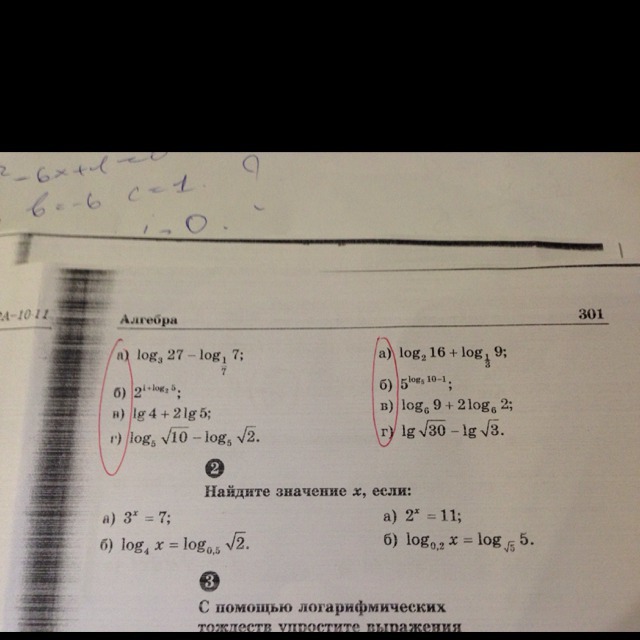 ² - 6x + 1 = 0
b = -6 c = 1.
= 0.
А–10-11
Алгебра 301
а) log₃ 27 − log_{1/7} 7;
б) 2^{1+log₂ 5};
в) lg 4 + 2 lg 5;
г) log₅ √10 − log₅ √2.
а) log₂ 16 + log_{1/3} 9;
б) 5^{log₅ 10−1};
в) log₆ 9 + 2 log₆ 2;
г) lg √30 − lg √3.
2
Найдите значение x, если:
а) 3^x = 7;
б) log₄ x = log_{0,5} √2.
а) 2^x = 11;
б) log_{0,2} x = log_{√5} 5.
3
С помощью логарифмических
тождеств упростите выражения